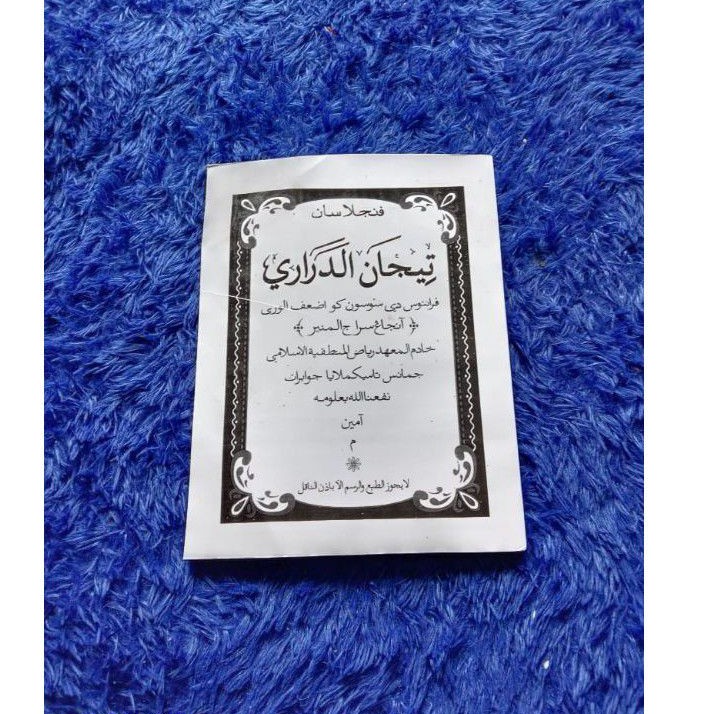 فنجلاسان
تِيجَان الدَّرَارِي
فرانتوس دي سوسون كو اضعف الورى
﴿ آنجاغ سراج المنير ﴾
خادم المعهد رياض المنطقية الاسلامي
جمانس تاسيكملايا جوابرات
نفعنا الله بعلومه
آمين
م
لا يجوز الطبع والرسم الا باذن الناقل